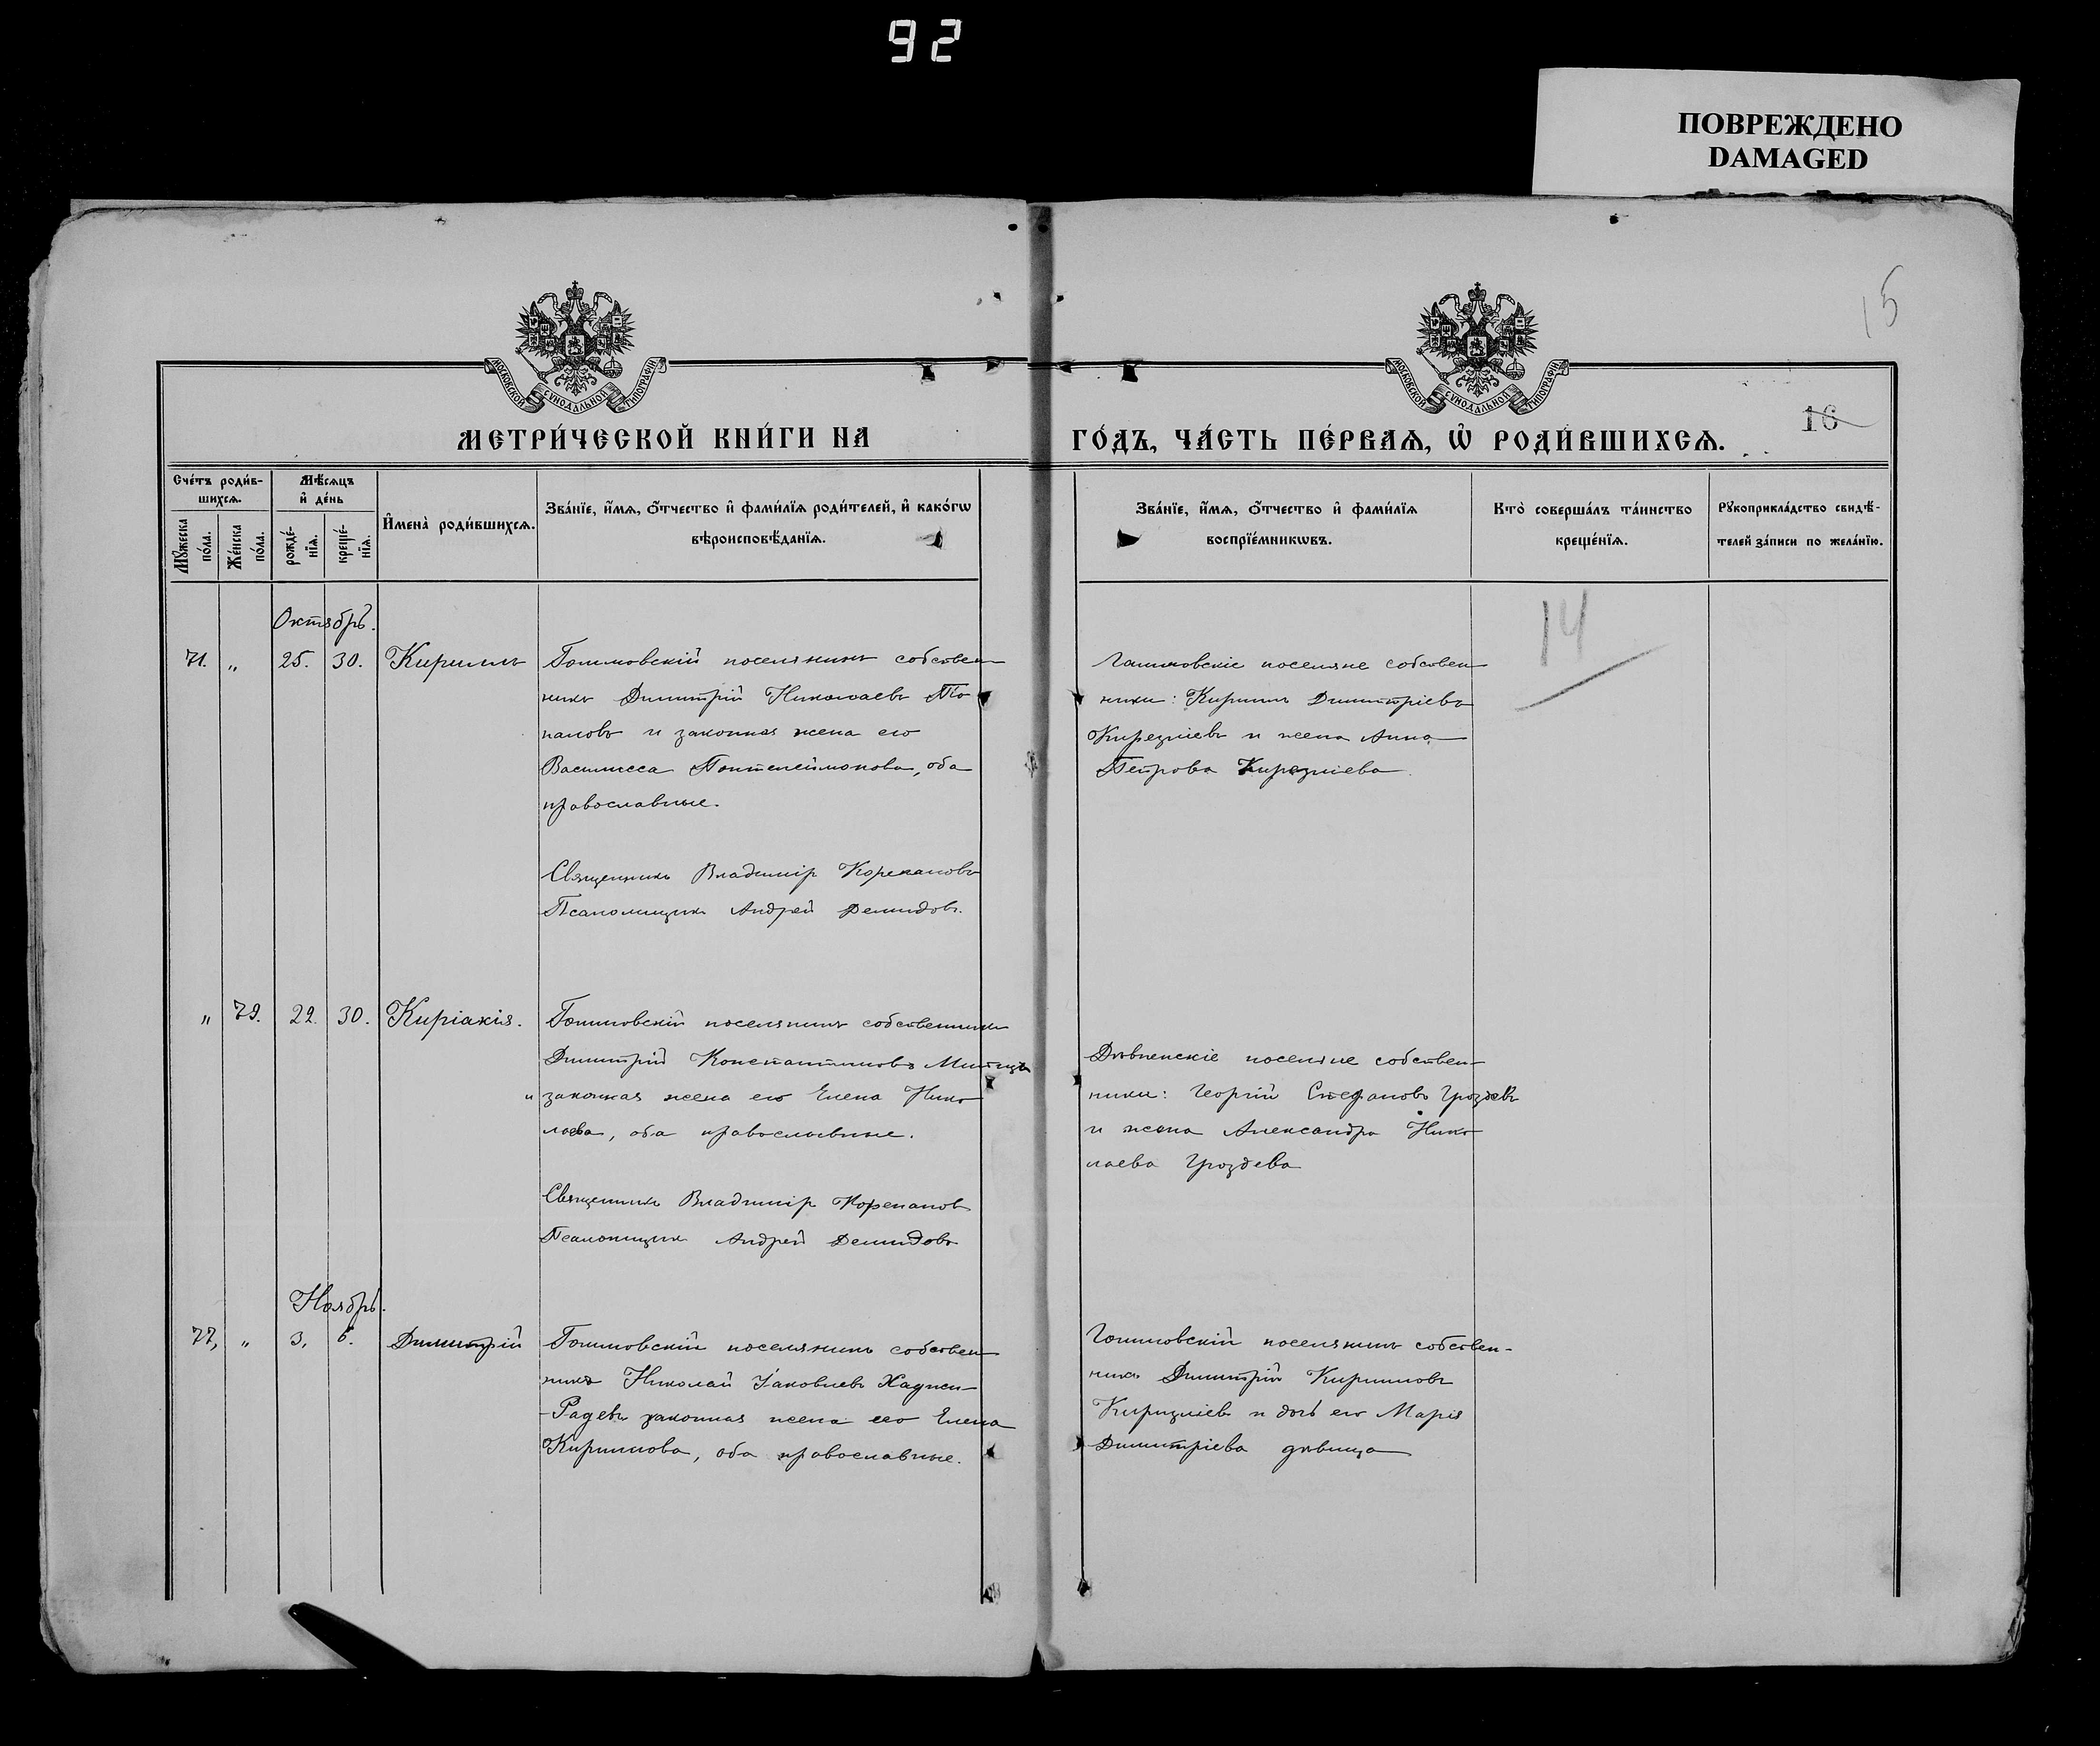 92
ПОВРЕЖДЕНО
DAMAGED
15
МОСКОВСКОЙ СѴНОДАЛЬНОЙ ТИПОГРАФІИ
МОСКОВСКОЙ СѴНОДАЛЬНОЙ ТИПОГРАФІИ
16
МЕТРИ́ЧЕСКОЙ КНИ́ГИ НА
ГО́ДЪ, ЧА́СТЬ ПЕ́РВАѦ, Ѡ҆ РОДИ́ВШИХСѦ.
Сче́тъ роди́в-
шихсѧ.
Мꙋ́жеска
по́ла.
Же́нска
по́ла.
Мѣ́сѧцъ
и҆ де́нь
рожде́-
нїѧ.
креще́-
нїѧ.
И҆мена̀ роди́вшихсѧ.
Зва́нїе, и҆́мѧ, ѻ҆́тчество и҆ фами́лїѧ роди́телей, и҆ како́гѡ
вѣроисповѣ́данїѧ.
Зва́нїе, и҆́мѧ, ѻ҆́тчество и҆ фами́лїѧ
воспрїе́мникѡвъ.
Кто̀ соверша́лъ та́инство
креще́нїѧ.
Рꙋкоприкла́дство свидѣ́-
телей за́писи по жела́нїю.
Октябрь.
14
71. „ 25. 30. Кириллъ
поселянинъ собствен
никъ Димитрій Николаевъ По
повъ и законная жена его
Василисса Пантелеймонова, оба
православные.
Священникъ Владиміръ Корепановъ
Псаломщикъ Андрей Демидовъ.
поселяне собствен
ники: Кириллъ Димитріевъ
и жена Анна
Петрова
„ 72. 22. 30. Киріакія.
поселянинъ собственникъ
Димитрій Константиновъ
и законная жена его Елена Нико
лаева, оба православные.
Священникъ Владиміръ Корепановъ
Псаломщикъ Андрей Демидовъ
поселяне собствен
ники: Георгій Стефановъ Гроздевъ
и жена Александра Нико
лаева Гроздева
Ноябрь.
„ 3. Димитрій
поселянинъ собствен
никъ Николай Іаковлевъ Хаджи
-Радевъ законная жена его Елена
Кириллова, оба православные.
поселянинъ собствен-
никъ Димитрій Кирилловъ
и дочь его Марія
Димитріева дѣвица